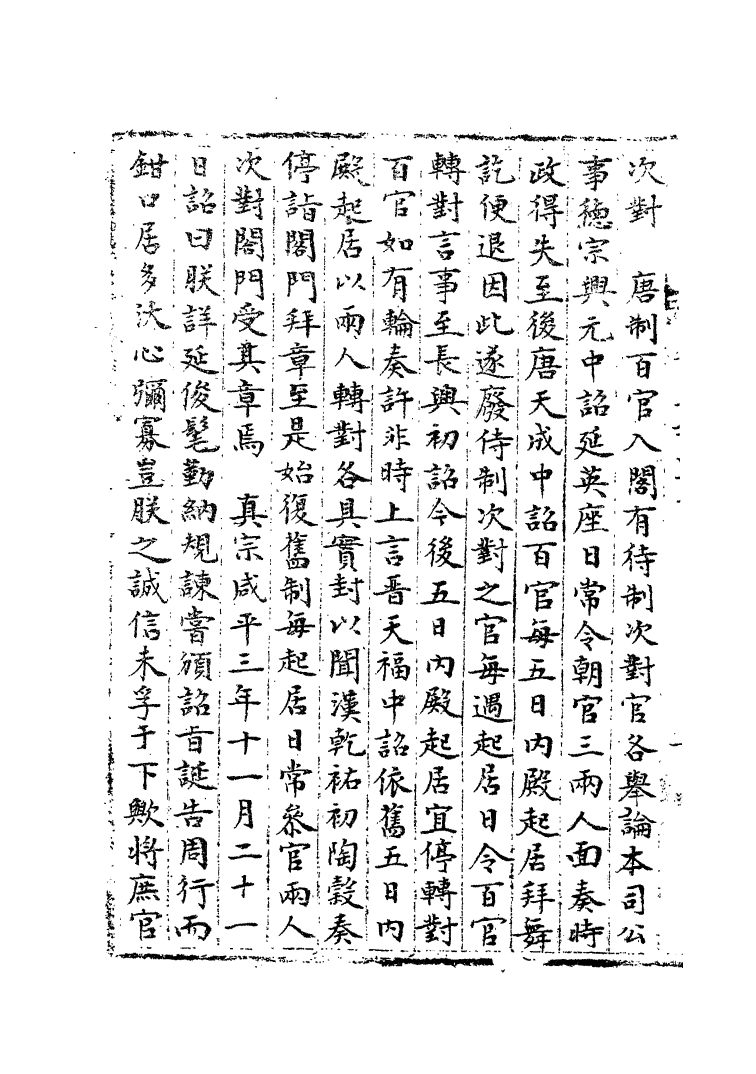 次對　唐制百官入閣有待制次對官各舉論本司公
事德宗興元中詔延英座日常令朝官三兩人面奏時
政得失至後唐天成中詔百官每五日內殿起居拜舞
訖便退因此遂廢待制次對之官每遇起居日令百官
轉對言事至長興初詔今後五日內殿起居宜停轉對
百官如有輪奏許非時上言晉天福中詔依舊五日內
殿起居以兩人轉對各具實封以聞漢乾祐初陶穀奏
停詣閤門拜章至是始復舊制每起居日常叅官兩人
次對閤門受其章焉　真宗咸平三年十一月二十一
日詔曰朕詳延俊髦勤納規諫嘗頒詔旨誕告周行而
鉗口居多沃心彌寡豈朕之誠信未孚于下歟將庶官